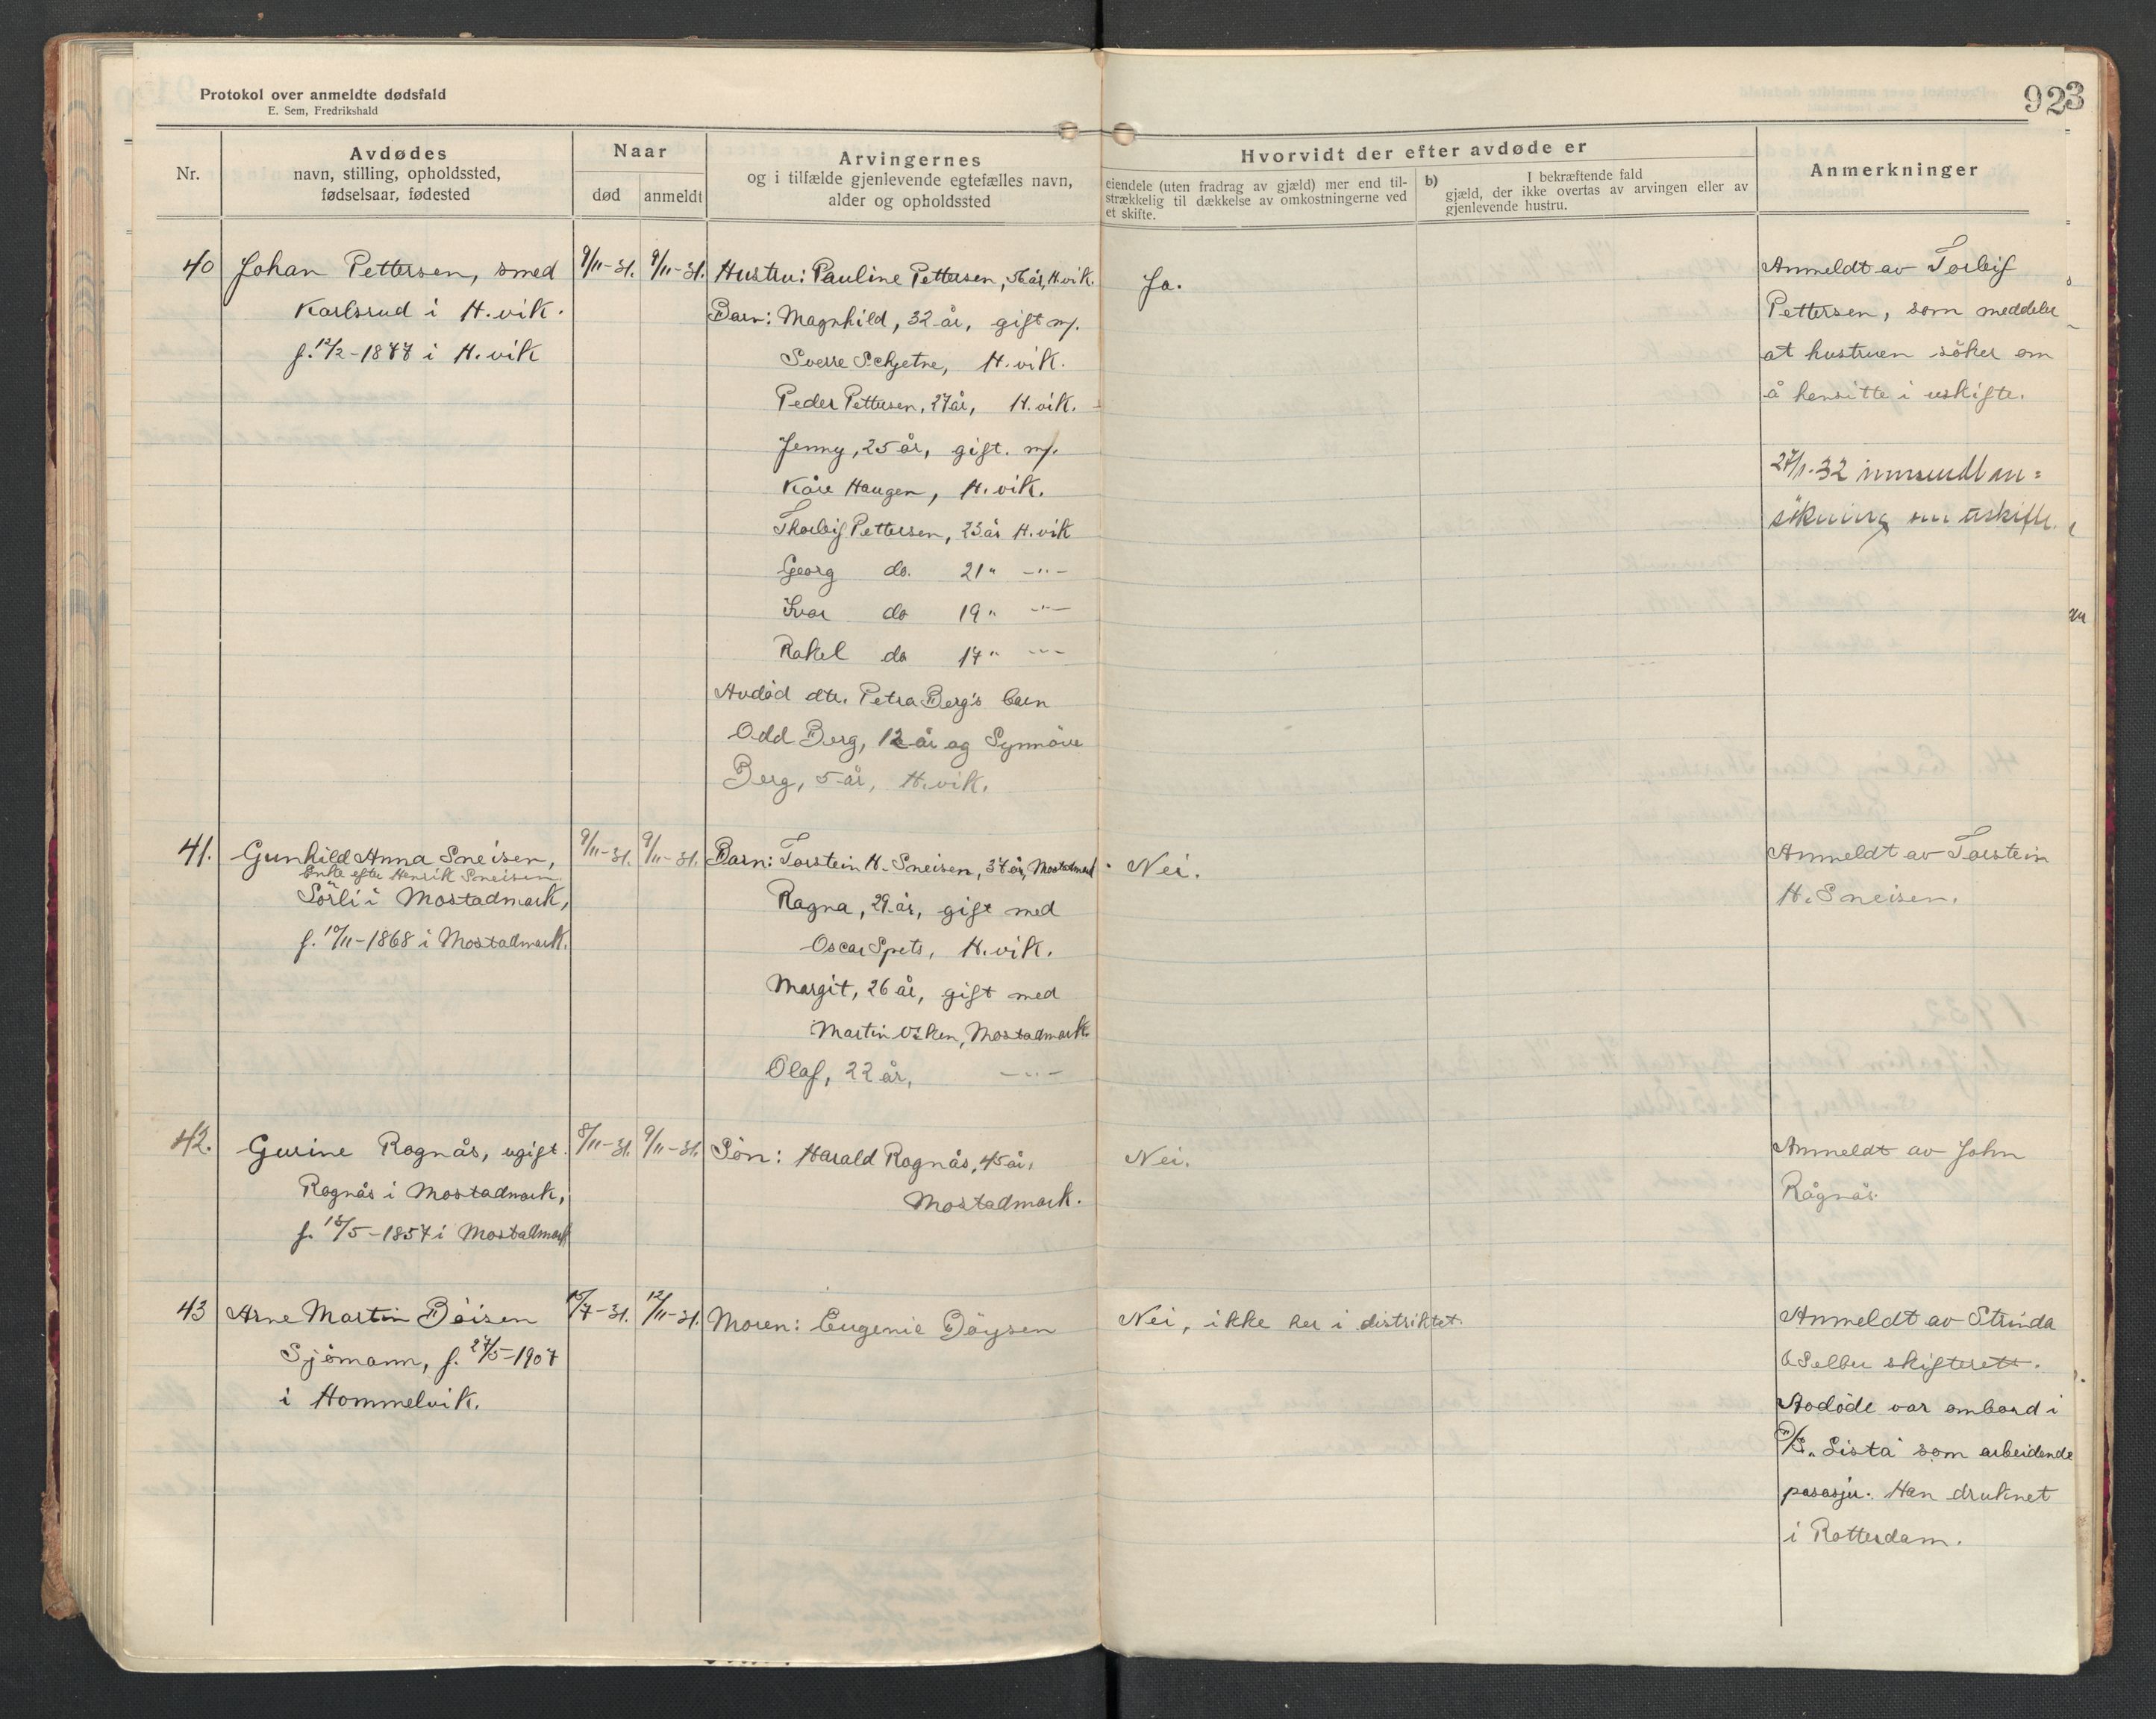 Protokol over anmeldte dødsfald
E. Sem, Fredrikshald
923
Nr.
Avdødes
navn, stilling, opholdssted,
fødselsaar, fødested
Naar
død
anmeldt
Arvingernes
og i tilfælde gjenlevende egtefælles navn,
alder og opholdssted
Hvorvidt der efter avdøde er
eiendele (uten fradrag av gjæld) mer end til-
strækkelig til dækkelse av omkostningerne ved
et skifte.
b) I bekræftende fald
gjæld, der ikke overtas av arvingen eller av
gjenlevende hustru.
Anmerkninger
40 Johan Pettersen, smed
Karlsrud i H.vik.
f. 12/2-1877 i H.vik
9/11-31. 9/11-31.
Hustru: Pauline Pettersen, år, H.vik.
Barn: Magnhild, 32 år, gift m/.
Sverre Schjetne, H.vik.
Peder Pettersen, 27 år, H.vik.
Jenny, 25 år, gift. m/.
Kåre Haugen, H.vik.
Thorleif Pettersen, 23 år H.vik
Georg do. 21 " -"-
Ivar do 19 " -"-
Rakel do 17 " -"-
Avdød dtr. Petra Berg's barn
Odd Berg, 12 år og Synnöve
Berg, 5 år, H.vik.
Ja.
Anmeldt av Torleif
Pettersen, som meddeler
at hustruen söker om
å hensitte i uskifte.
27/1-32 innsendt an=
sökning om uskifte.
41. Gunhild Anna Sneisen,
Enke efter Henrik Sneisen
Sörli i Mostadmark,
f. 10/11-1868 i Mostadmark.
9/11-31. 9/11-31.
Barn: Torstein H. Sneisen, 37 år, Mostadmark
Ragna, 29 år, gift med
Oscar Spets, H.vik.
Margit, 26 år, gift med
Martin , Mostadmark.
Olaf, 22 år, -"-
Nei.
Anmeldt av Torstein
H. Sneisen.
42. Gurine Rognås, ugift.
Rognås i Mostadmark,
f. /5-1857 i Mostadmark
8/11-31. 9/11-31.
Sön: Harald Rognås, 45 år,
Mostadmark.
Nei.
Anmeldt av John
Rågnås.
43 Arne Martin Böisen
Sjömann, f. 27/5-1907
i Hommelvik.
/7-31. 12/11-31.
Moren: Eugenie Böysen
Nei, ikke her i distriktet.
Anmeldt av Strinda
& Selbu skifterett.
Avdöde var ombord i
D/S. "Lista" som arbeidende
passasjer. Han druknet
i Rotterdam.